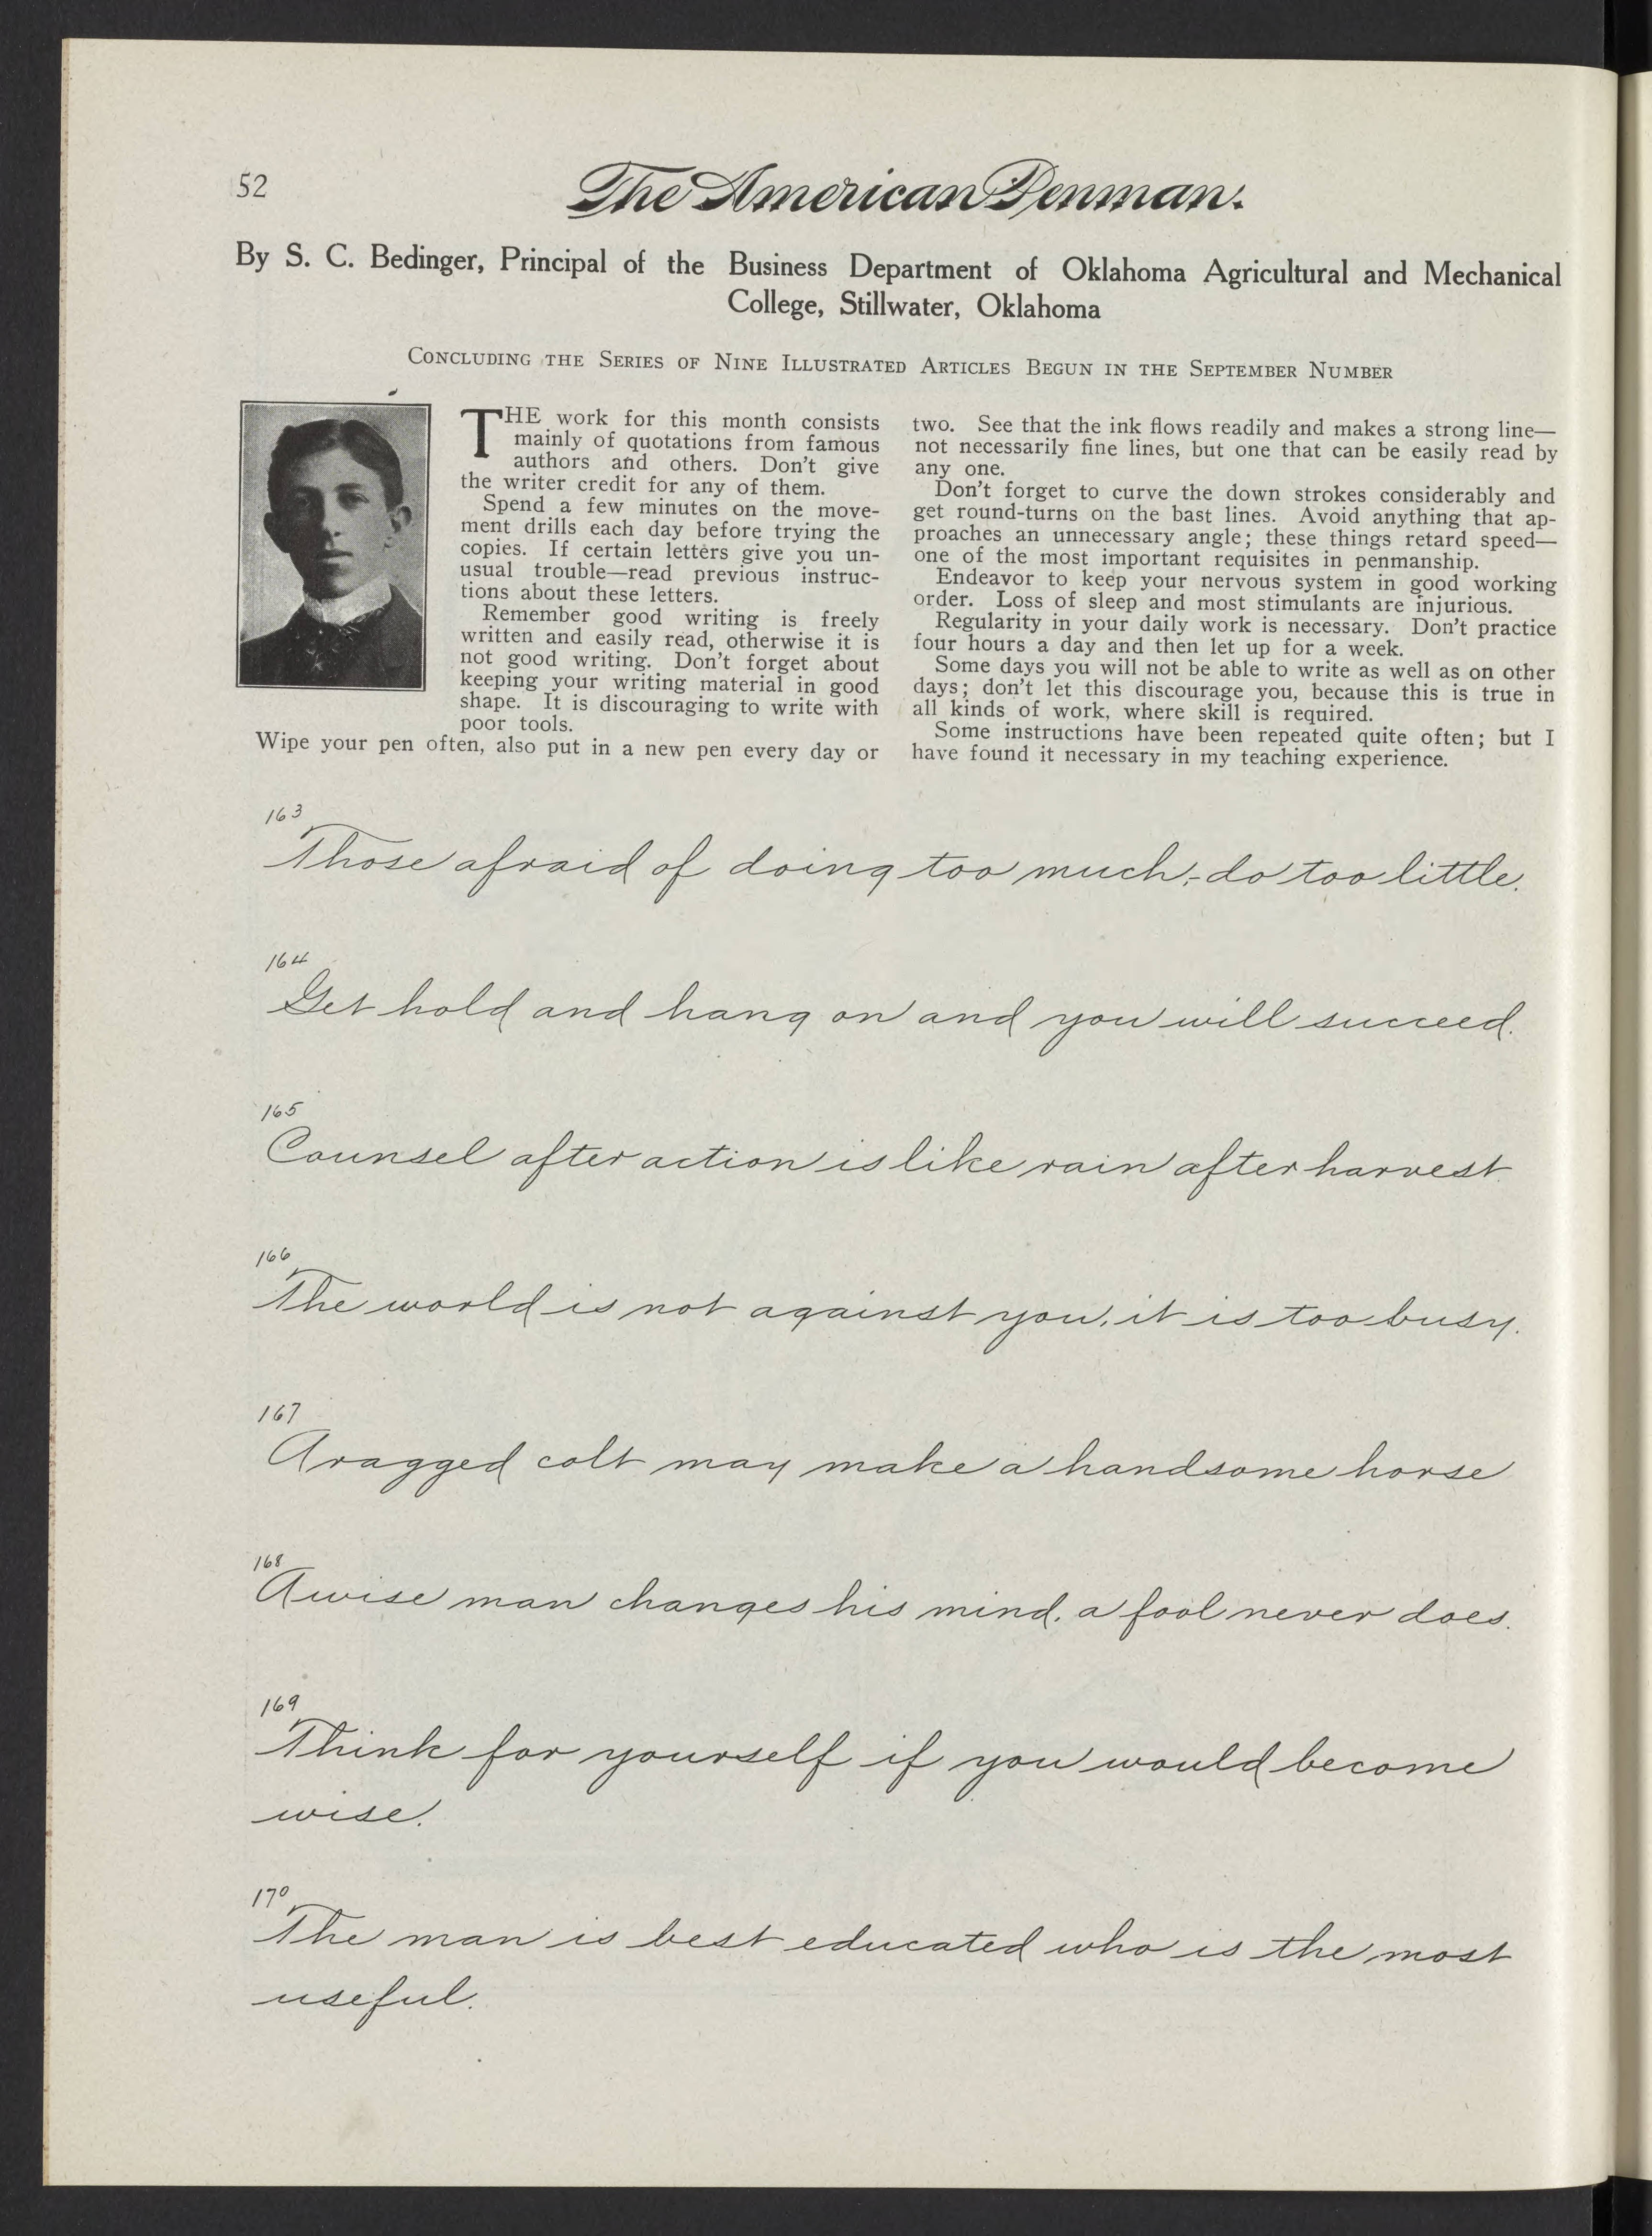 52
The American Penman.
By S. C. Bedinger, Principal of the Business Department of Oklahoma Agricultural and Mechanical
College, Stillwater, Oklahoma
Concluding the Series of Nine Illustrated Articles Begun in the September Number
THE work for this month consists
mainly of quotations from famous
authors and others. Don't give
the writer credit for any of them.
Spend a few minutes on the move-
ment drills each day before trying the
copies. If certain letters give you un-
usual trouble—read previous instruc-
tions about these letters.
Remember good writing is freely
written and easily read, otherwise it is
not good writing. Don't forget about
keeping your writing material in good
shape. It is discouraging to write with
poor tools.
Wipe your pen often, also put in a new pen every day or
two. See that the ink flows readily and makes a strong line—
not necessarily fine lines, but one that can be easily read by
any one.
Don't forget to curve the down strokes considerably and
get round-turns on the bast lines. Avoid anything that ap-
proaches an unnecessary angle; these things retard speed—
one of the most important requisites in penmanship.
Endeavor to keep your nervous system in good working
order. Loss of sleep and most stimulants are injurious.
Regularity in your daily work is necessary. Don't practice
four hours a day and then let up for a week.
Some days you will not be able to write as well as on other
days; don't let this discourage you, because this is true in
all kinds of work, where skill is required.
Some instructions have been repeated quite often; but I
have found it necessary in my teaching experience.
163
Those afraid of doing too much,-do too little.
164
Get hold and hang on and you will succeed.
165
Counsel after action is like rain after harvest.
166
The world is not against you, it is too busy.
167
A ragged colt may make a handsome horse
168
A wise man changes his mind, a fool never does.
169
Think for yourself if you would become
wise.
170
The man is best educated who is the most
useful.